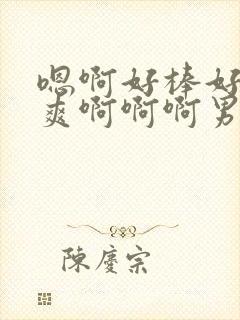 嗯啊好棒好
爽啊啊啊男
陳慶宗